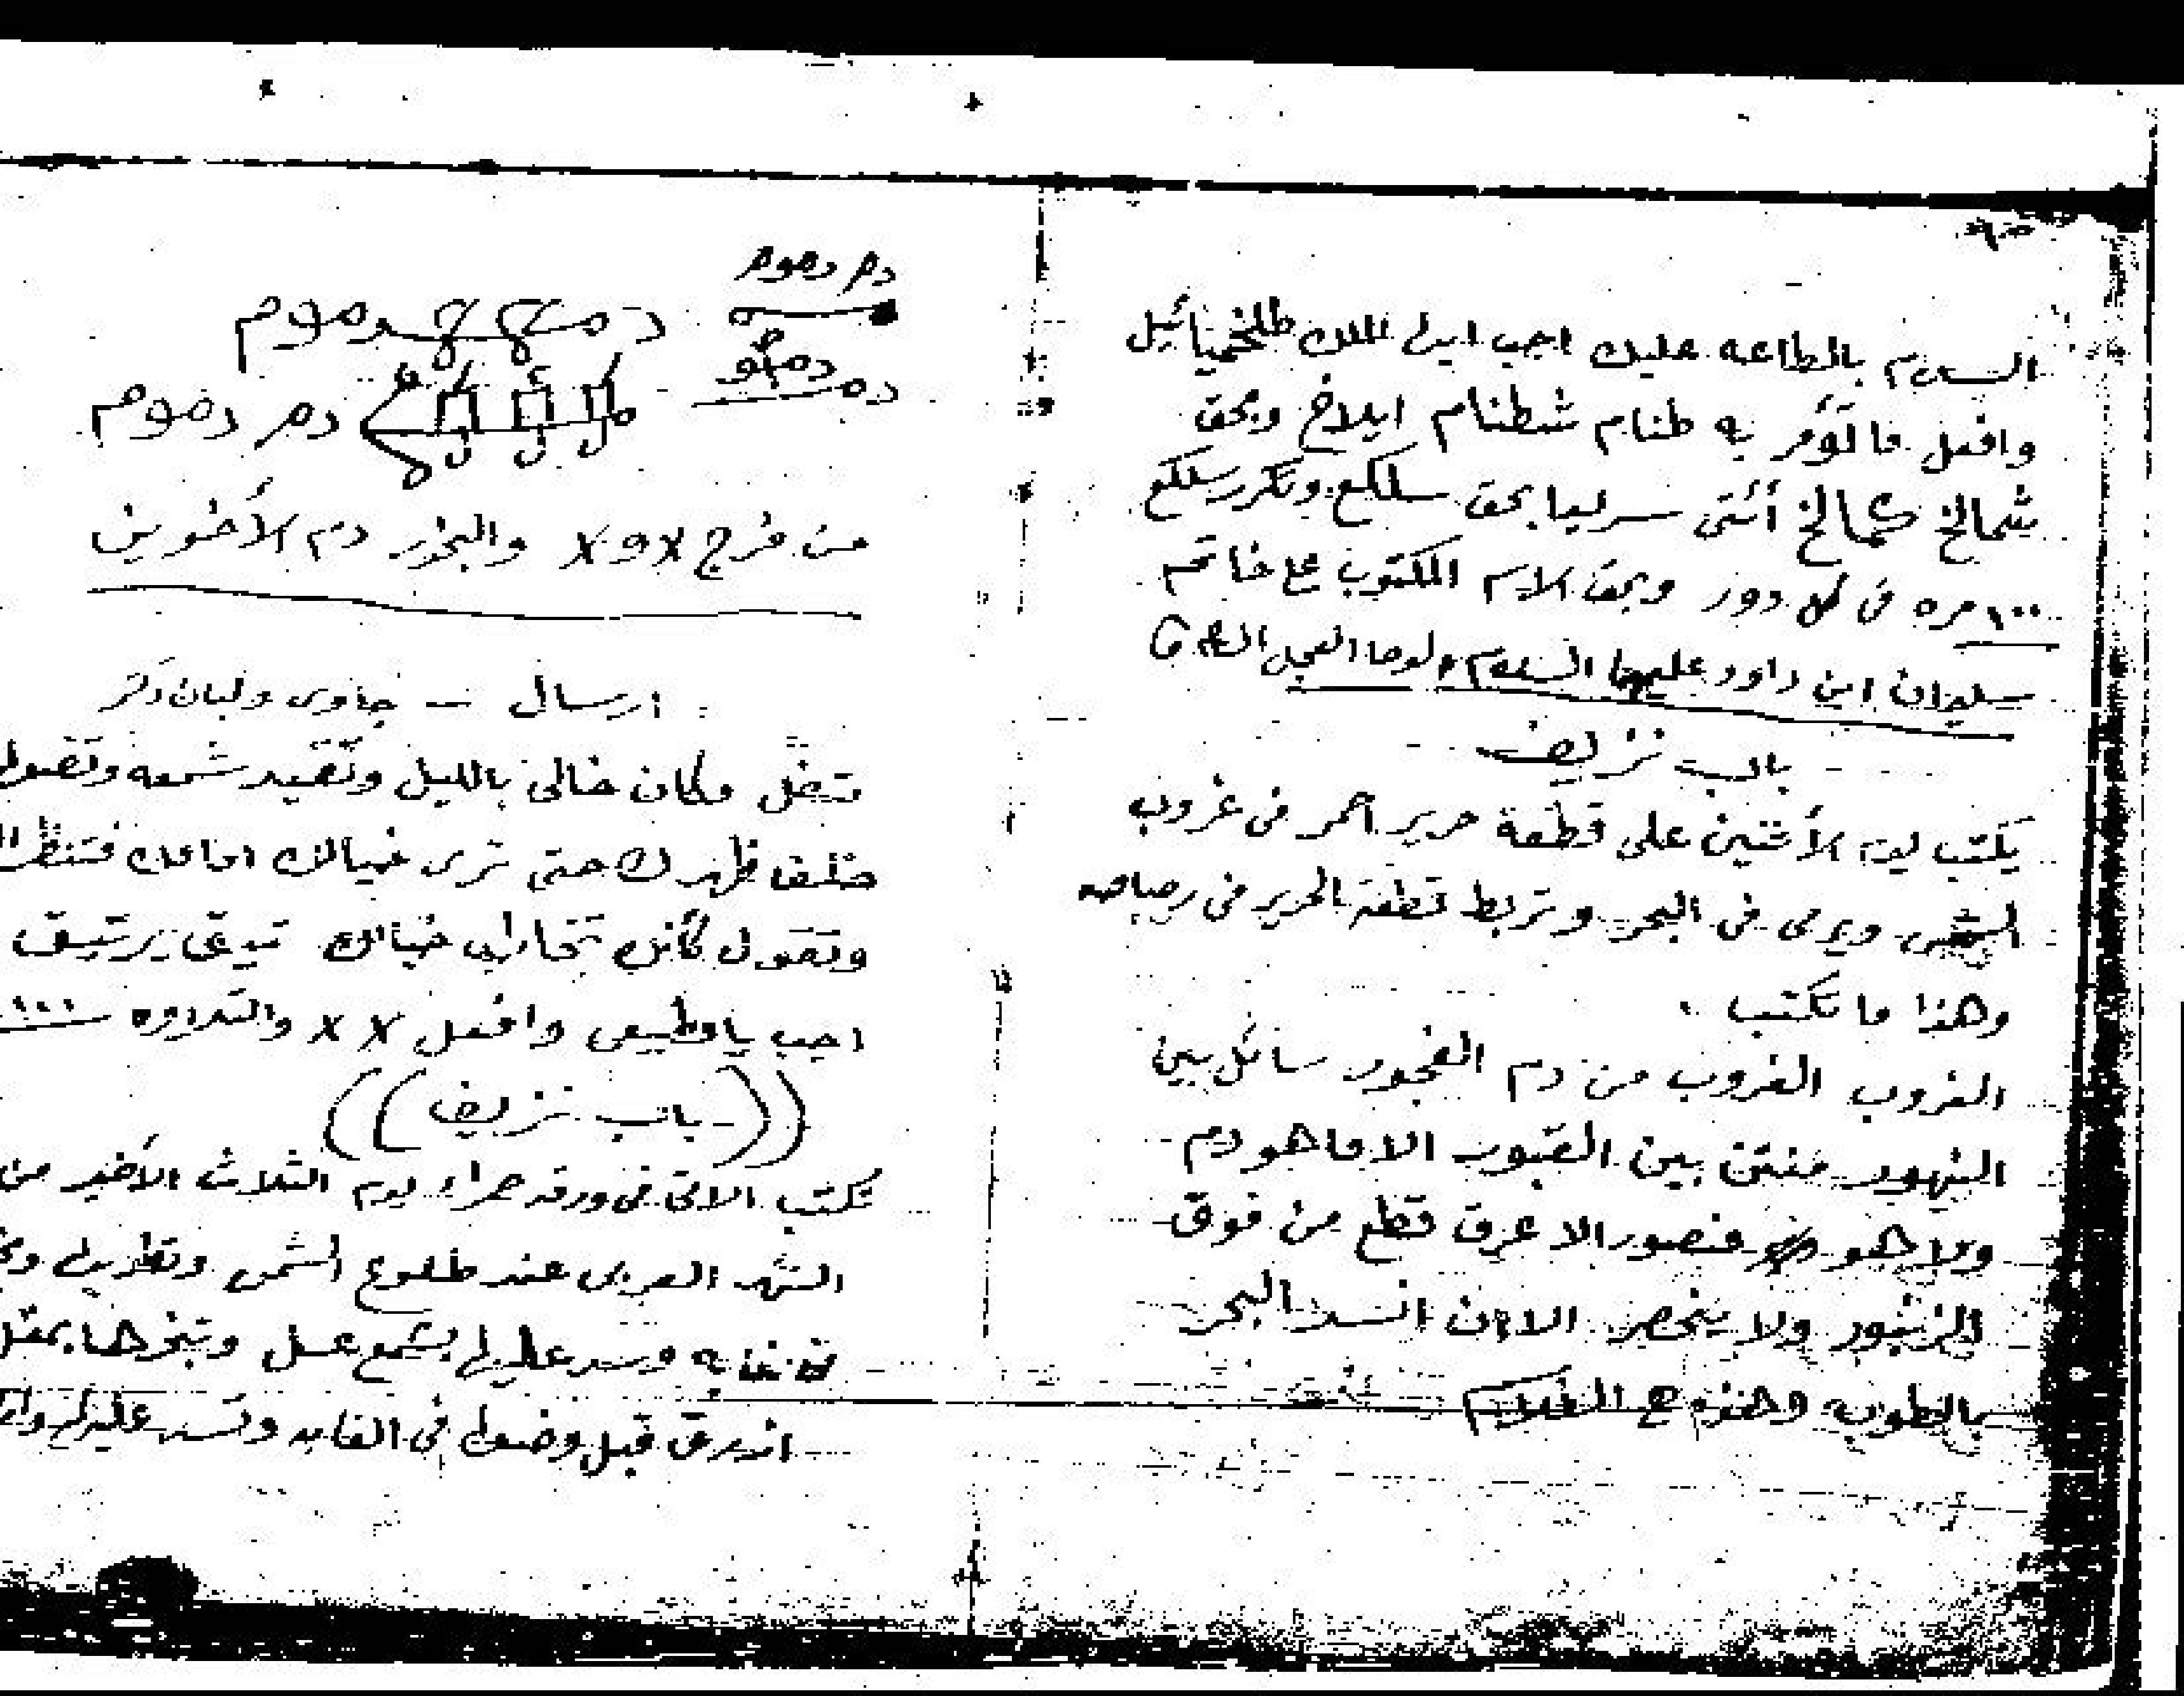 السلام بالطاعه عليك اجب ايها الملك طلخميائيل
وافعل ما تؤمر به طنام شطنام ايلاخ وبحق
شمالخ كمالخ سرليا بحق سلكع وتكرر سلكع
١٠٠ مره فى كل دور وبحق الاسم المكتوب على خاتم
سليمان ابن داود عليهما السلام الوحا العجل
باب نزيف
يكتب يوم الأثنين على قطعة حرير احمر فى غروب
الشمس ويرمى فى البحر وتربط قطعة الحرير فى رصاصه
وهذا ما تكتب
الغروب الغروب من دم الفجور سائل بين
النهور منتن بين القبور الا ما هو دم
ولا هو منصور الا عرق قطع من فوق
الزنبور ولا ينحصر الا ان انسد البحر
بالطوب وهذه
دم دموم
دموم
دم دموم
من فرج x و x والبخور دم الأخوين
ارسال – جاوى ولبان دكر
تدخل مكان خالى بالليل وتقيد شمعه وتضعها
خلف ظهرك حتى ترى خيالك امامك فتنظر
وتقول كأنك تخاطب خيالك
اجب يا مطيعى وافعل x x والتلاوه ١٠٠٠
((باب نزيف))
تكتب الاتى فى ورقه حمراء يوم الثلاث الأخير من
الشهر العربى عند طلوع الشمس وتطويها
وسد عليها بشمع عسل وتبخرها بمقل
ازرق قبل وضعها فى الغابه وتسد عليها